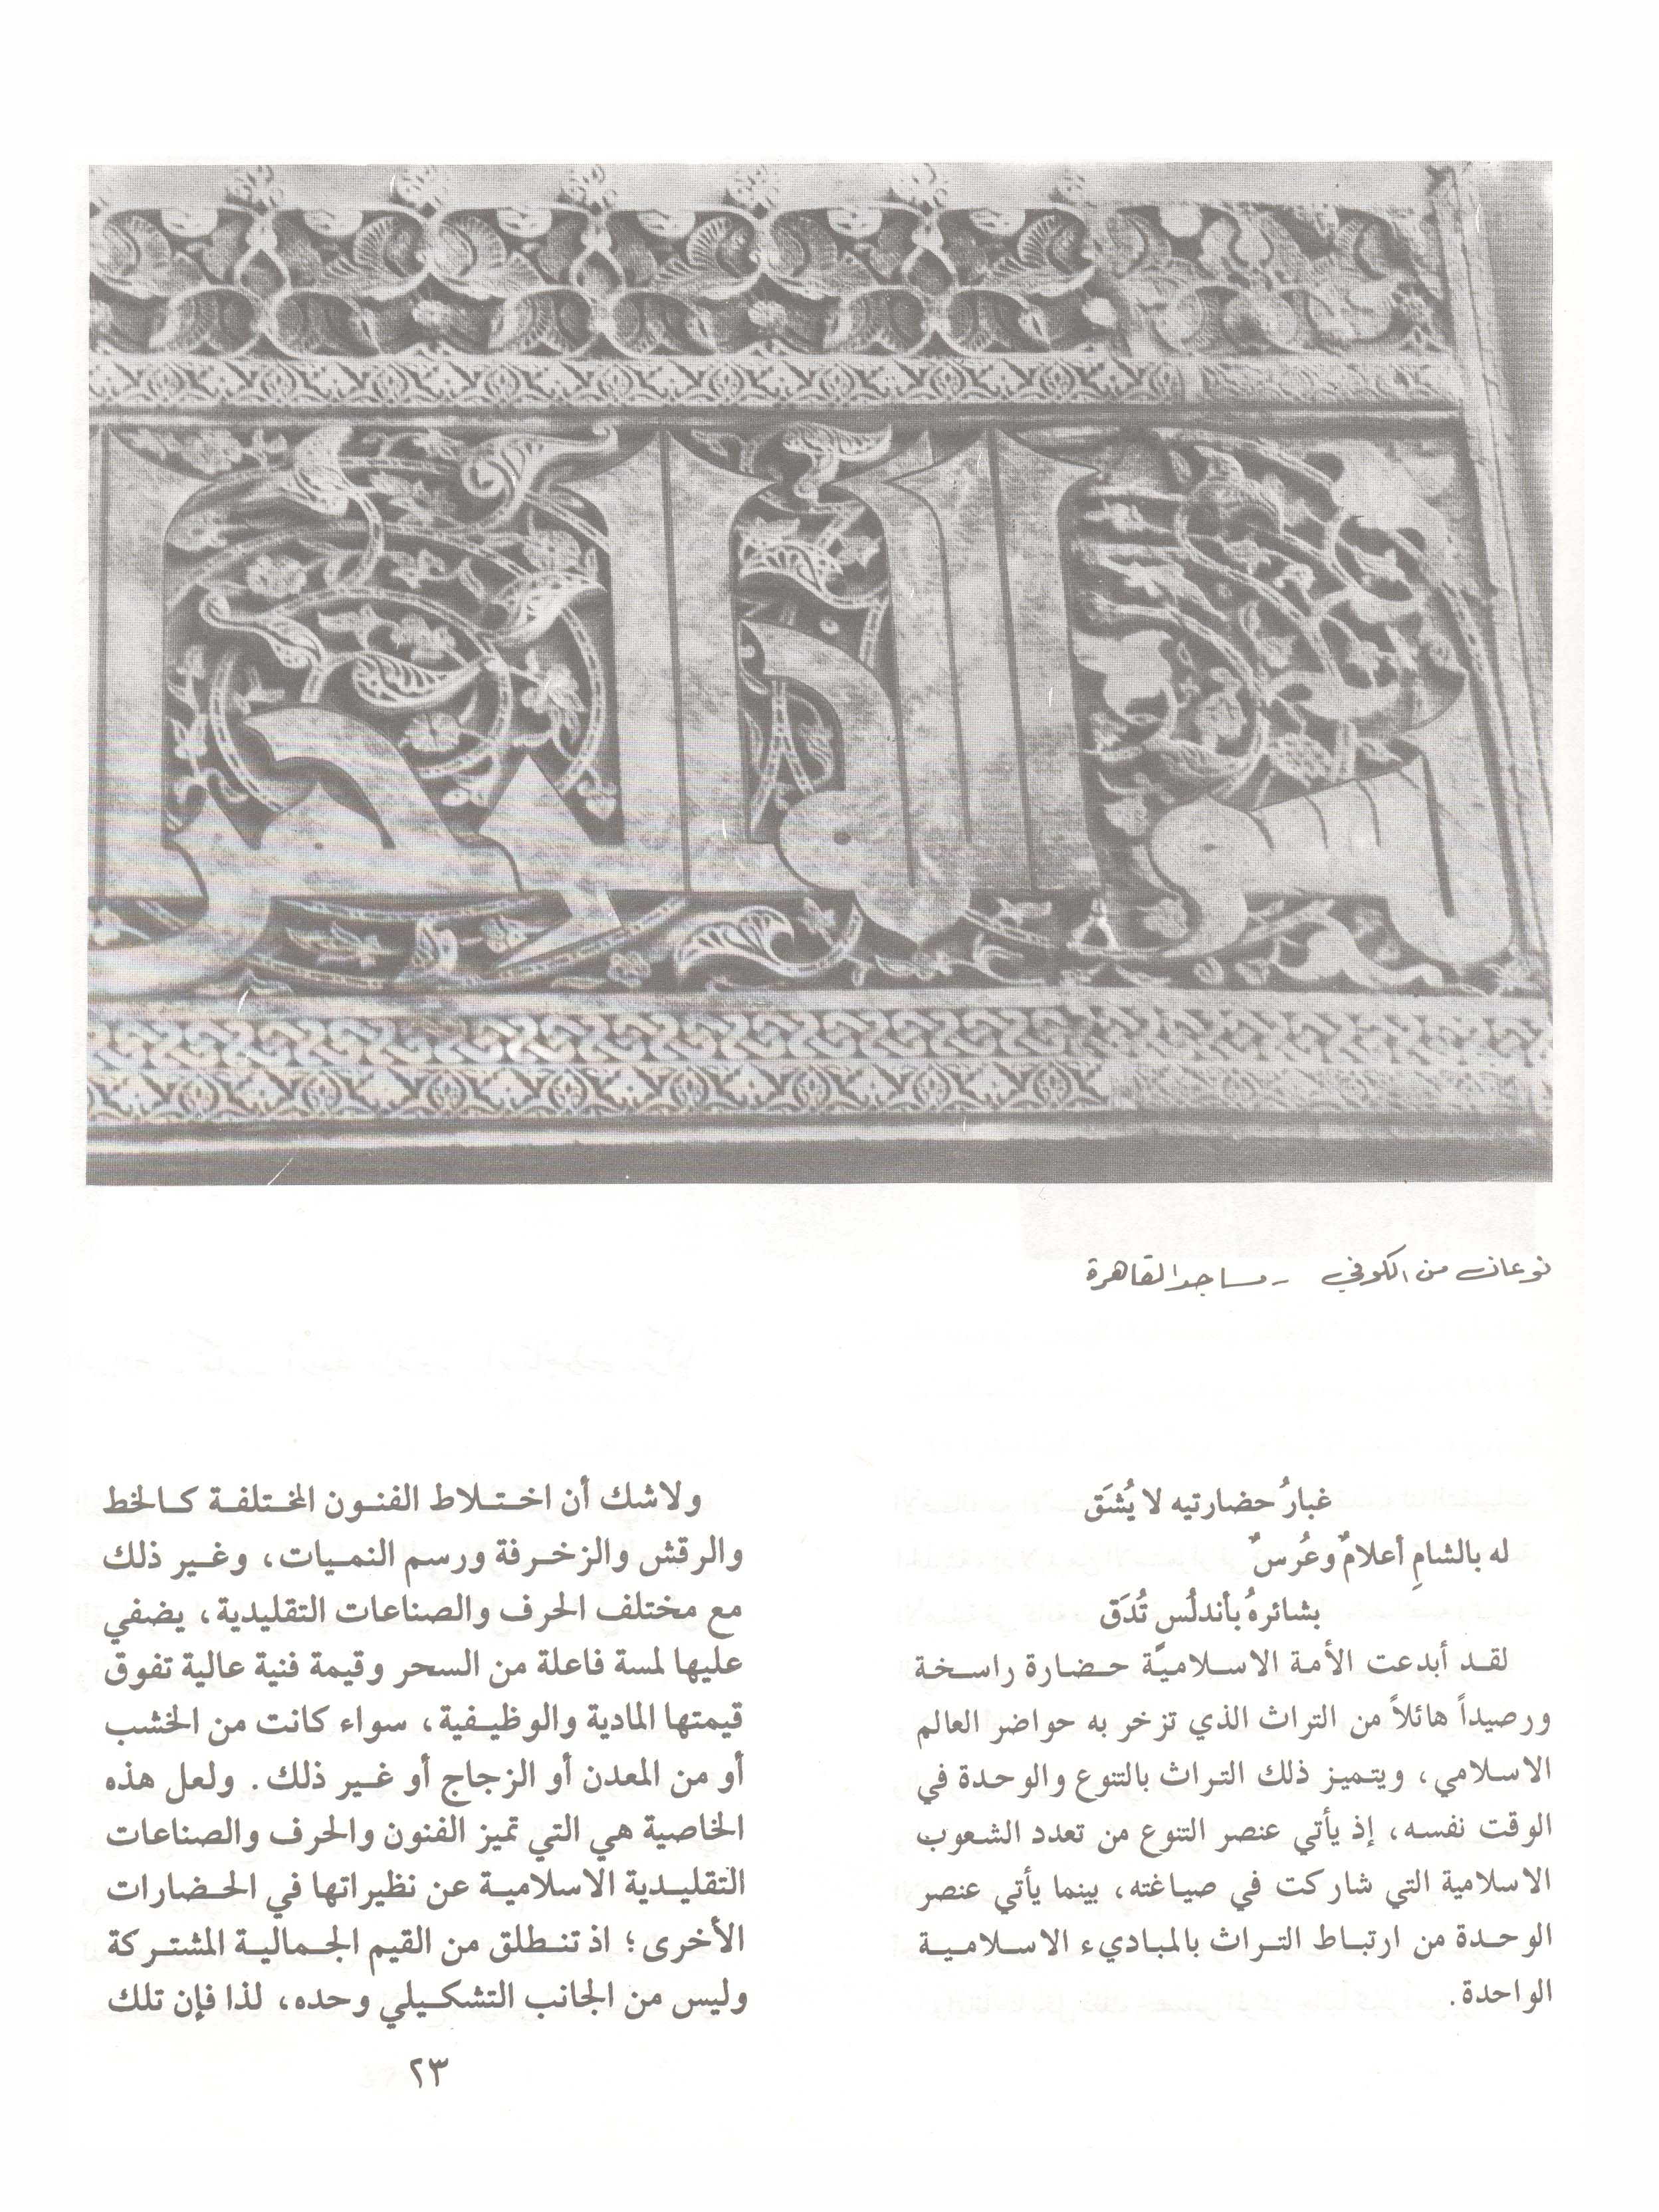 نوعان من الكوفي - مساجد القاهرة
غبارُ حضارتيه لا يُشَق
له بالشامِ أعلامٌ وعُرسٌ
بشائرهُ بأندلُسٍ تُدَق
لقد أبدعت الأمة الاسلاميّة حضارة راسخة
ورصيداً هائلاً من التراث الذي تزخر به حواضر العالم
الاسلامي، ويتميز ذلك التراث بالتنوع والوحدة في
الوقت نفسه، إذ يأتي عنصر التنوع من تعدد الشعوب
الاسلامية التي شاركت في صياغته، بينما يأتي عنصر
الوحدة من ارتباط التراث بالمباديء الاسلامية
الواحدة.
ولاشك أن اختلاط الفنون المختلفة كالخط
والرقش والزخرفة ورسم النميات، وغير ذلك
مع مختلف الحرف والصناعات التقليدية، يضفي
عليها لمسة فاعلة من السحر وقيمة فنية عالية تفوق
قيمتها المادية والوظيفية، سواء كانت من الخشب
أو من المعدن أو الزجاج أو غير ذلك. ولعل هذه
الخاصية هي التي تميز الفنون والحرف والصناعات
التقليدية الاسلامية عن نظيراتها في الحضارات
الأخرى؛ اذ تنطلق من القيم الجمالية المشتركة
وليس من الجانب التشكيلي وحده، لذا فإن تلك
٢٣